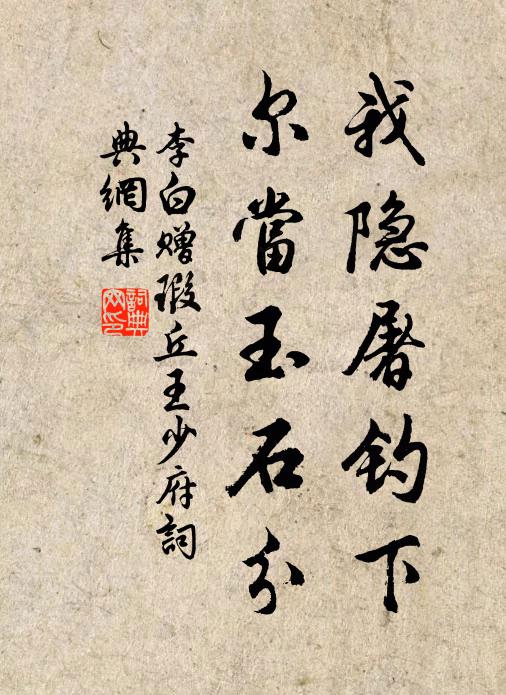 我隐屠钓下
尔當玉石分
李白赠瑕丘王少府詞
典網集
詞典
网印